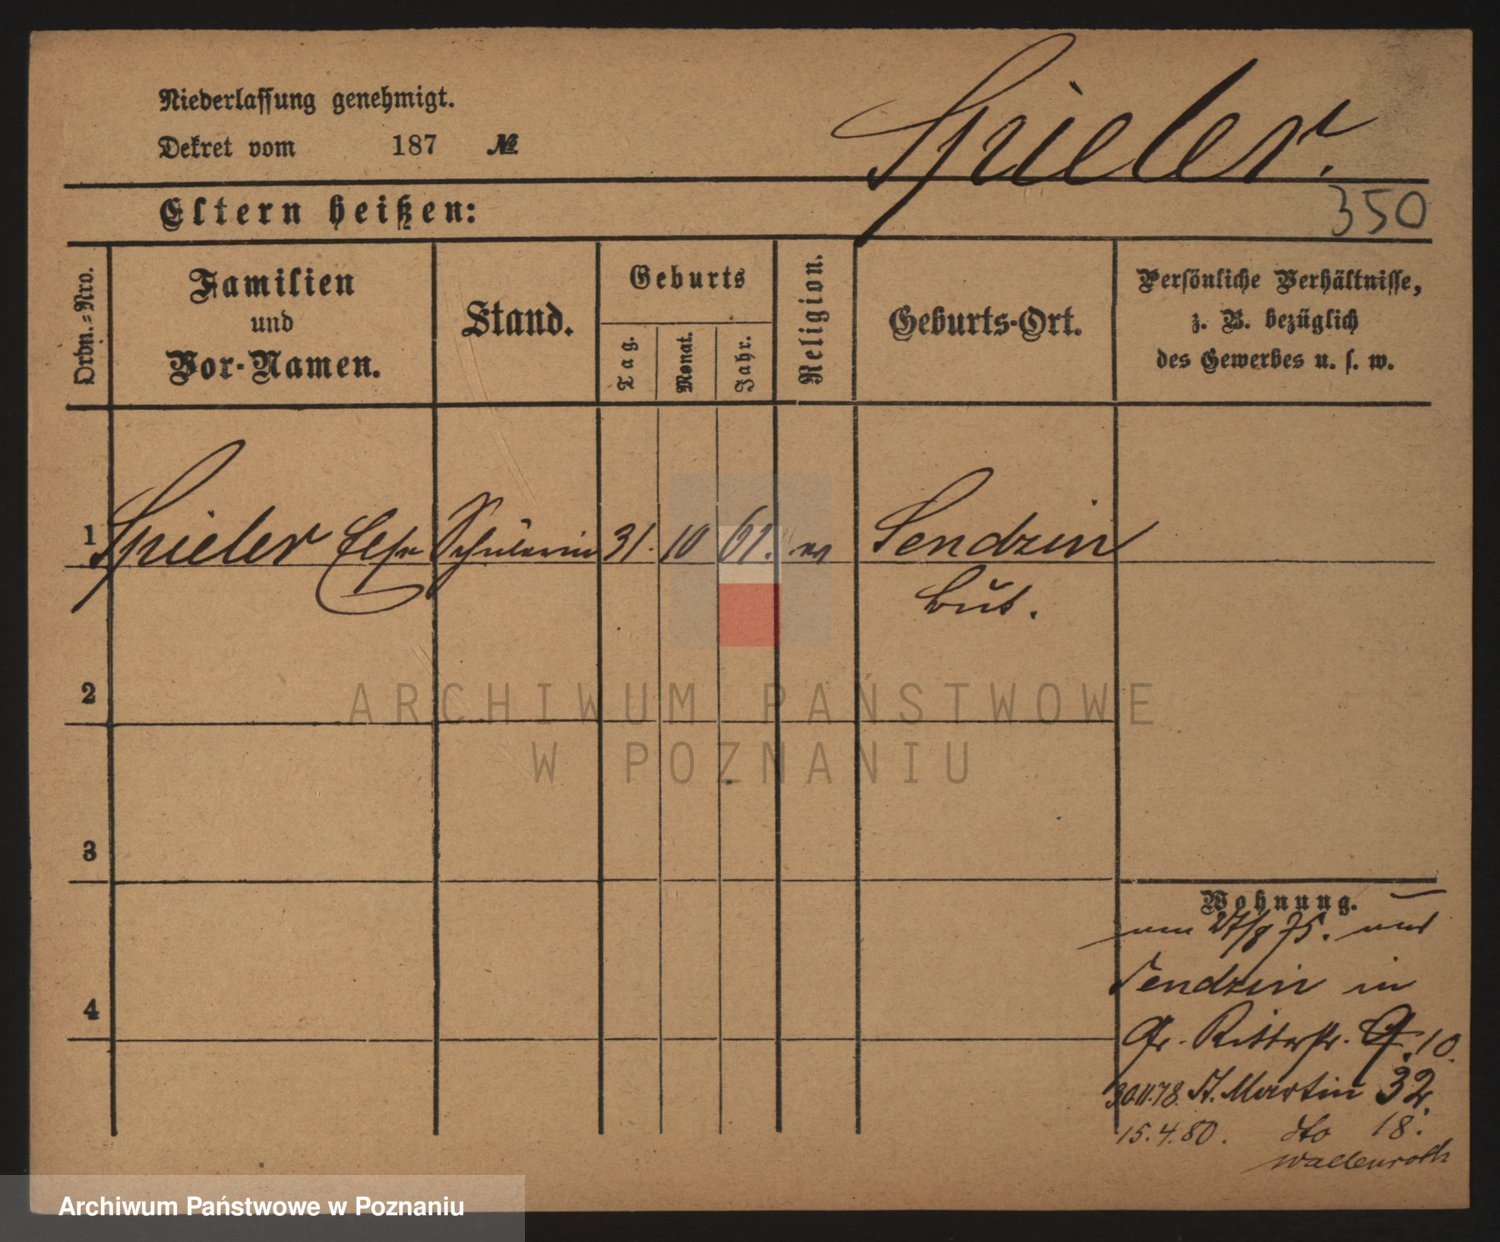 Niederlassung genehmigt.
Dekret vom 187 №
Spieler.
Eltern heißen:
350
Ordn.-Nro.
Familien
und
Vor-Namen.
Stand.
Geburts
Tag.
Monat.
Jahr.
Religion.
Geburts-Ort.
Persönliche Verhältnisse,
z. B. bezüglich
des Gewerbes u. s. w.
1 Spieler Else Schülerin 31. 10 61. ev Sendzin
Buk.
2
3
4
Wohnung.
am 27/8 75. aus
Sendzin in
Gr. Ritterstr. 10.
St. Martin 32.
15.4.80. dto 18.
Wallenroth
ARCHIWUM PAŃSTWOWE
W POZNANIU
Archiwum Państwowe w Poznaniu